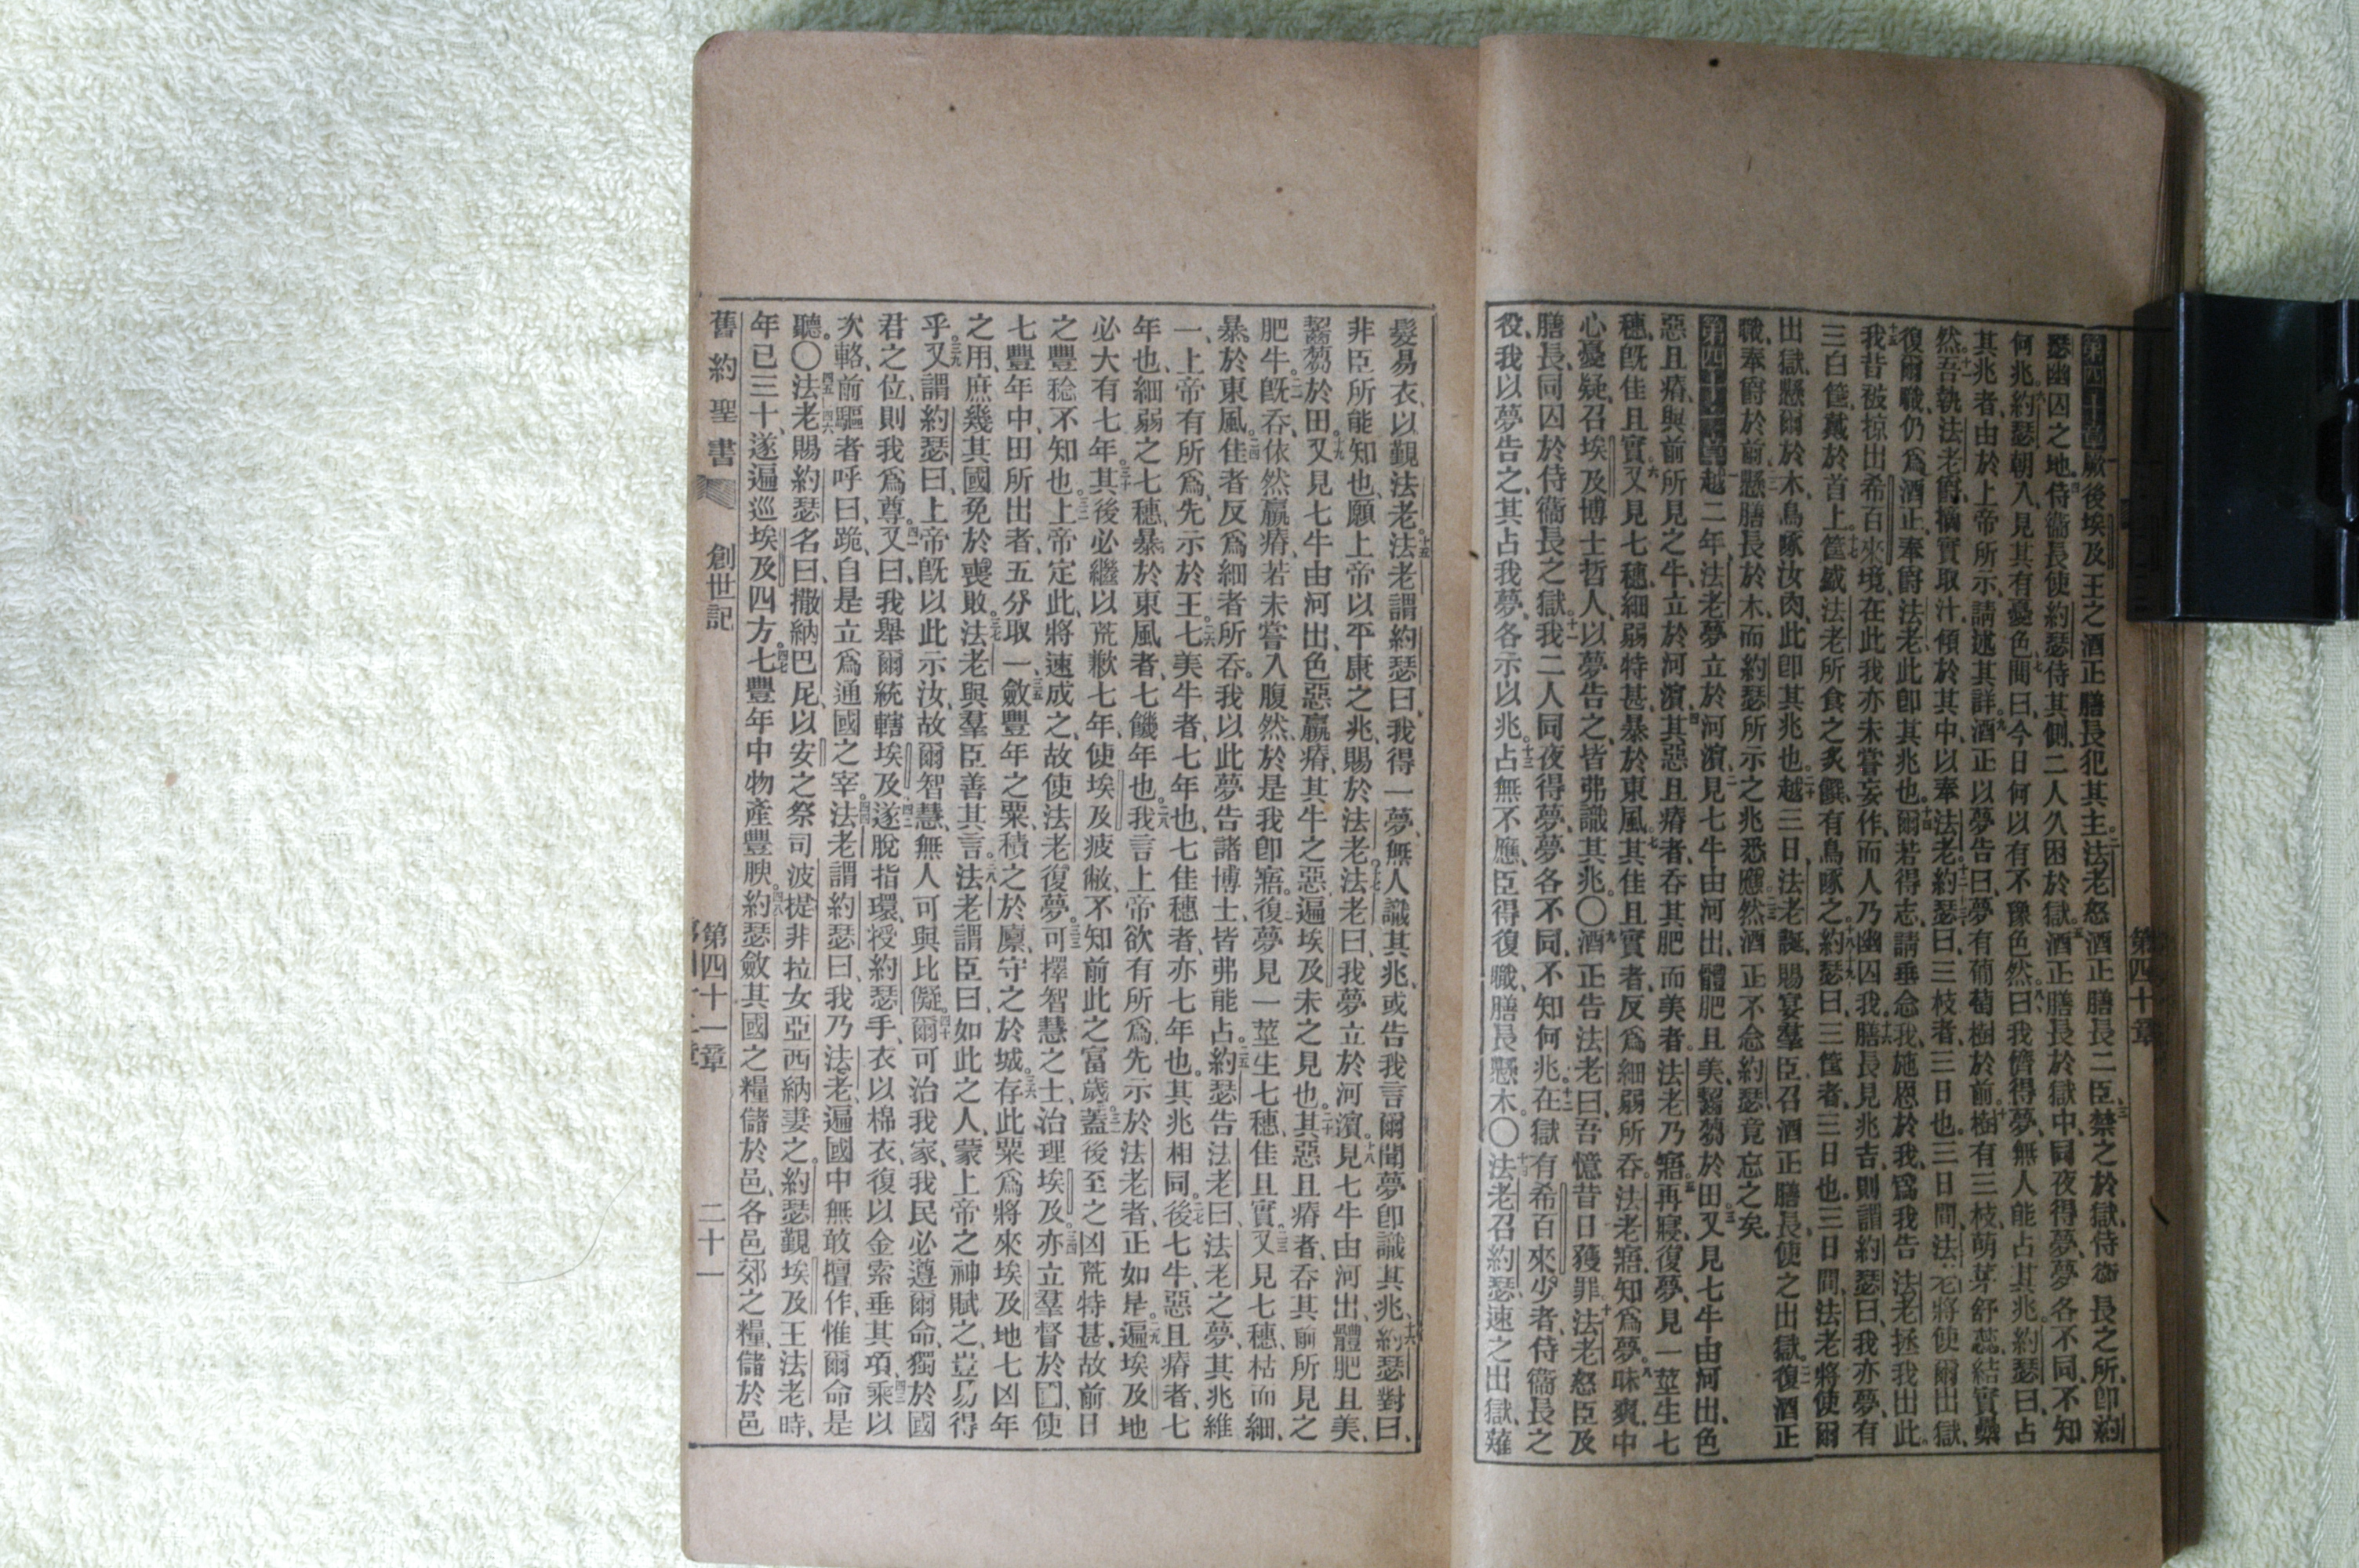 第四十章厥後埃及王之酒正膳長犯其主法老怒酒正膳長二臣禁之於獄侍衞長之所卽約
瑟幽囚之地侍衞長使約瑟侍其側二人久困於獄酒正膳長於獄中同夜得夢夢各不同不知
何兆約瑟朝入見其有憂色問曰今日何以有不豫色然曰我儕得夢無人能占其兆約瑟曰占
其兆者由於上帝所示請述其詳酒正以夢告曰夢有葡萄樹於前樹有三枝萌芽舒蕊結實纍
然吾執法老爵摘實取汁傾於其中以奉法老約瑟曰三枝者三日也三日間法老將使爾出獄
復爾職仍爲酒正奉爵法老此卽其兆也爾若得志請垂念我施恩於我爲我告法老拯我出此
我昔被掠出希百來境在此我亦未嘗妄作而人乃幽囚我膳長見兆吉則謂約瑟曰我亦夢有
三白筐戴於首上筐盛法老所食之炙饌有鳥啄之約瑟曰三筐者三日也三日間法老將使爾
出獄懸爾於木鳥啄汝肉此卽其兆也越三日法老誕賜宴羣臣召酒正膳長使之出獄復酒正
職奉爵於前懸膳長於木而約瑟所示之兆悉應然酒正不念約瑟竟忘之矣
第四十一章越二年法老夢立於河濱見七牛由河出體肥且美齧芻於田又見七牛由河出色
惡且瘠與前所見之牛立於河濱其惡且瘠者吞其肥而美者法老乃寤再寢復夢見一莖生七
穗旣佳且實又見七穗細弱特甚暴於東風其佳且實者反爲細弱所吞法老寤知爲夢昧爽中
心憂疑召埃及博士哲人以夢告之皆弗識其兆〇酒正告法老曰吾憶昔日獲罪法老怒臣及
膳長同囚於侍衞長之獄我二人同夜得夢夢各不同不知何兆在獄有希百來少者侍衞長之
役我以夢告之其占我夢各示以兆占無不應臣得復職膳長懸木〇法老召約瑟速之出獄薙
髮易衣以覲法老法老謂約瑟曰我得一夢無人識其兆或告我言爾聞夢卽識其兆約瑟對曰
非臣所能知也願上帝以平康之兆賜於法老法老曰我夢立於河濱見七牛由河出體肥且美
齧芻於田又見七牛由河出色惡羸瘠其牛之惡遍埃及未之見也其惡且瘠者吞其前所見之
肥牛旣吞依然羸瘠若未嘗入腹然於是我卽寤復夢見一莖生七穗佳且實又見七穗枯而細
暴於東風佳者反爲細者所吞我以此夢告諸博士皆弗能占約瑟告法老曰法老之夢其兆維
一上帝有所爲先示於王七美牛者七年也七佳穗者亦七年也其兆相同後七牛惡且瘠者七
年也細弱之七穗暴於東風者七饑年也我言上帝欲有所爲先示於法老者正如是遍埃及地
必大有七年其後必繼以荒歉七年使埃及疲敝不知前此之富歲蓋後至之凶荒特甚故前日
之豐稔不知也上帝定此將速成之故使法老復夢可擇智慧之士治理埃及亦立羣督於使
七豐年中田所出者五分取一斂豐年之粟積之於廩守之於城存此粟爲將來埃及地七凶年
之用庶幾其國免於喪敗法老與羣臣善其言法老謂臣曰如此之人蒙上帝之神賦之豈易得
乎又謂約瑟曰上帝旣以此示汝故爾智慧無人可與比儗爾可治我家我民必遵爾命獨於國
君之位則我爲尊又曰我舉爾統轄埃及遂脫指環授約瑟手衣以棉衣復以金索垂其項乘以
次輅前驅者呼曰跪自是立爲通國之宰法老謂約瑟曰我乃法老遍國中無敢擅作惟爾命是
聽〇法老賜約瑟名曰撒納巴尼以安之祭司波提非拉女亞西納妻之約瑟覲埃及王法老時
年已三十遂遍巡埃及四方七豐年中物產豐腴約瑟斂其國之糧儲於邑各邑郊之糧儲於邑
舊約聖書 創世記 第四十一章 二十一